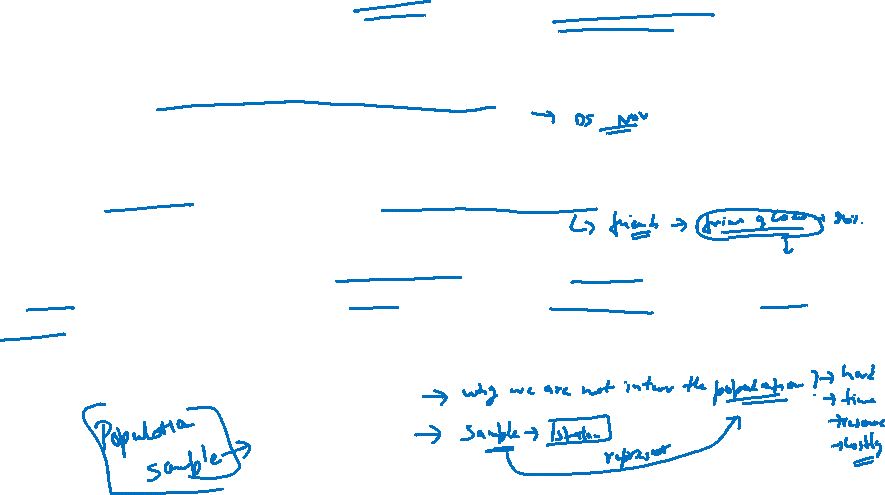 → DS Nov
↳ friends → 
→ why we are not inter the population? → hard
→ time
→ sample →
→ costly
represent
Population
sample →